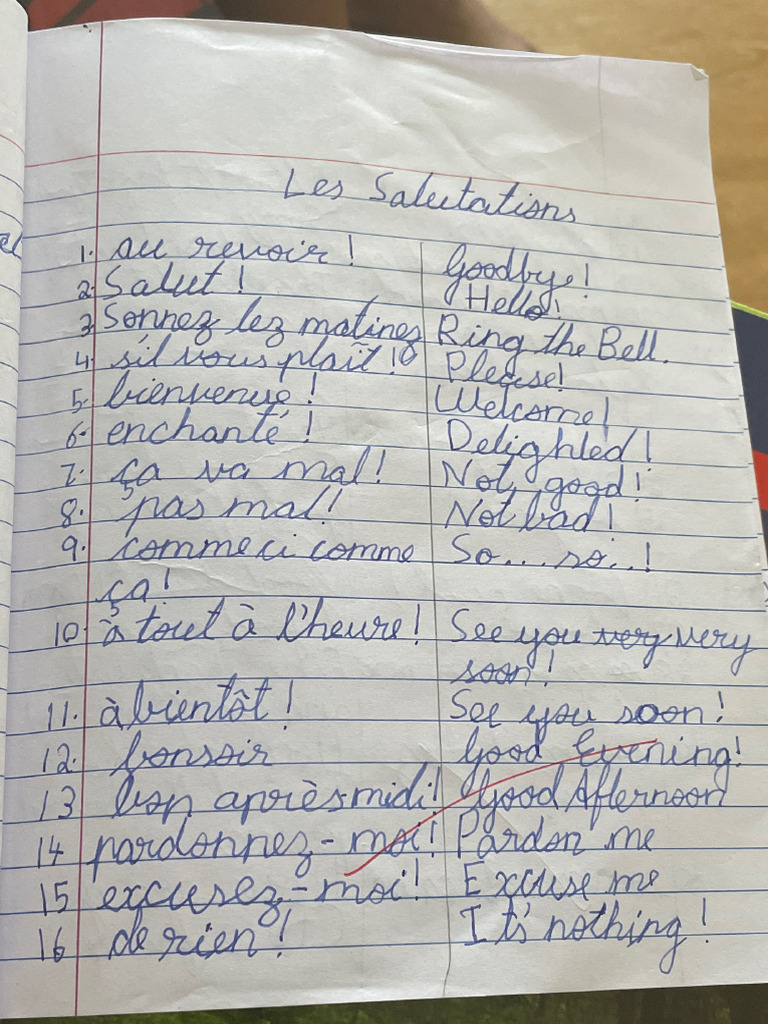 Les Salutations
1. au revoir! Goodbye!
2. Salut! Hello!
3. Sonnez lez matinez Ring the Bell.
4. s'il vous plaît! Please!
5. bienvenue! Welcome!
6. enchanté! Delighted!
7. ça va mal! Not good!
8. pas mal! Not bad!
9. comme ci comme So...so..!
ça!
10. à tout à l'heure! See you very very
soon!
11. à bientôt! See you soon!
12. bonsoir Good Evening!
13 bon après midi! Good Afternoon
14 pardonnez-moi! Pardon me
15 excusez-moi! Excuse me
16 de rien! Its' nothing!